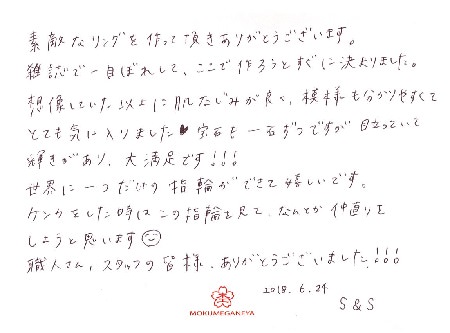 素敵なリングを作って頂きありがとうございます。
雑誌で一目ぼれして、ここで作ろうとすぐに決まりました。
想像していた以上に肌なじみが良く、模様も分かりやすくて
とても気に入りました♥ 宝石も一石ずつですが目立っていて
輝きがあり、大満足です!!!
世界に一つだけの指輪ができて嬉しいです。
ケンカをした時はこの指輪を見て、なんとか仲直りを
しようと思います☺
職人さん、スタッフの皆様、ありがとうございました!!!
2018.6.24
S & S
MOKUMEGANEYA